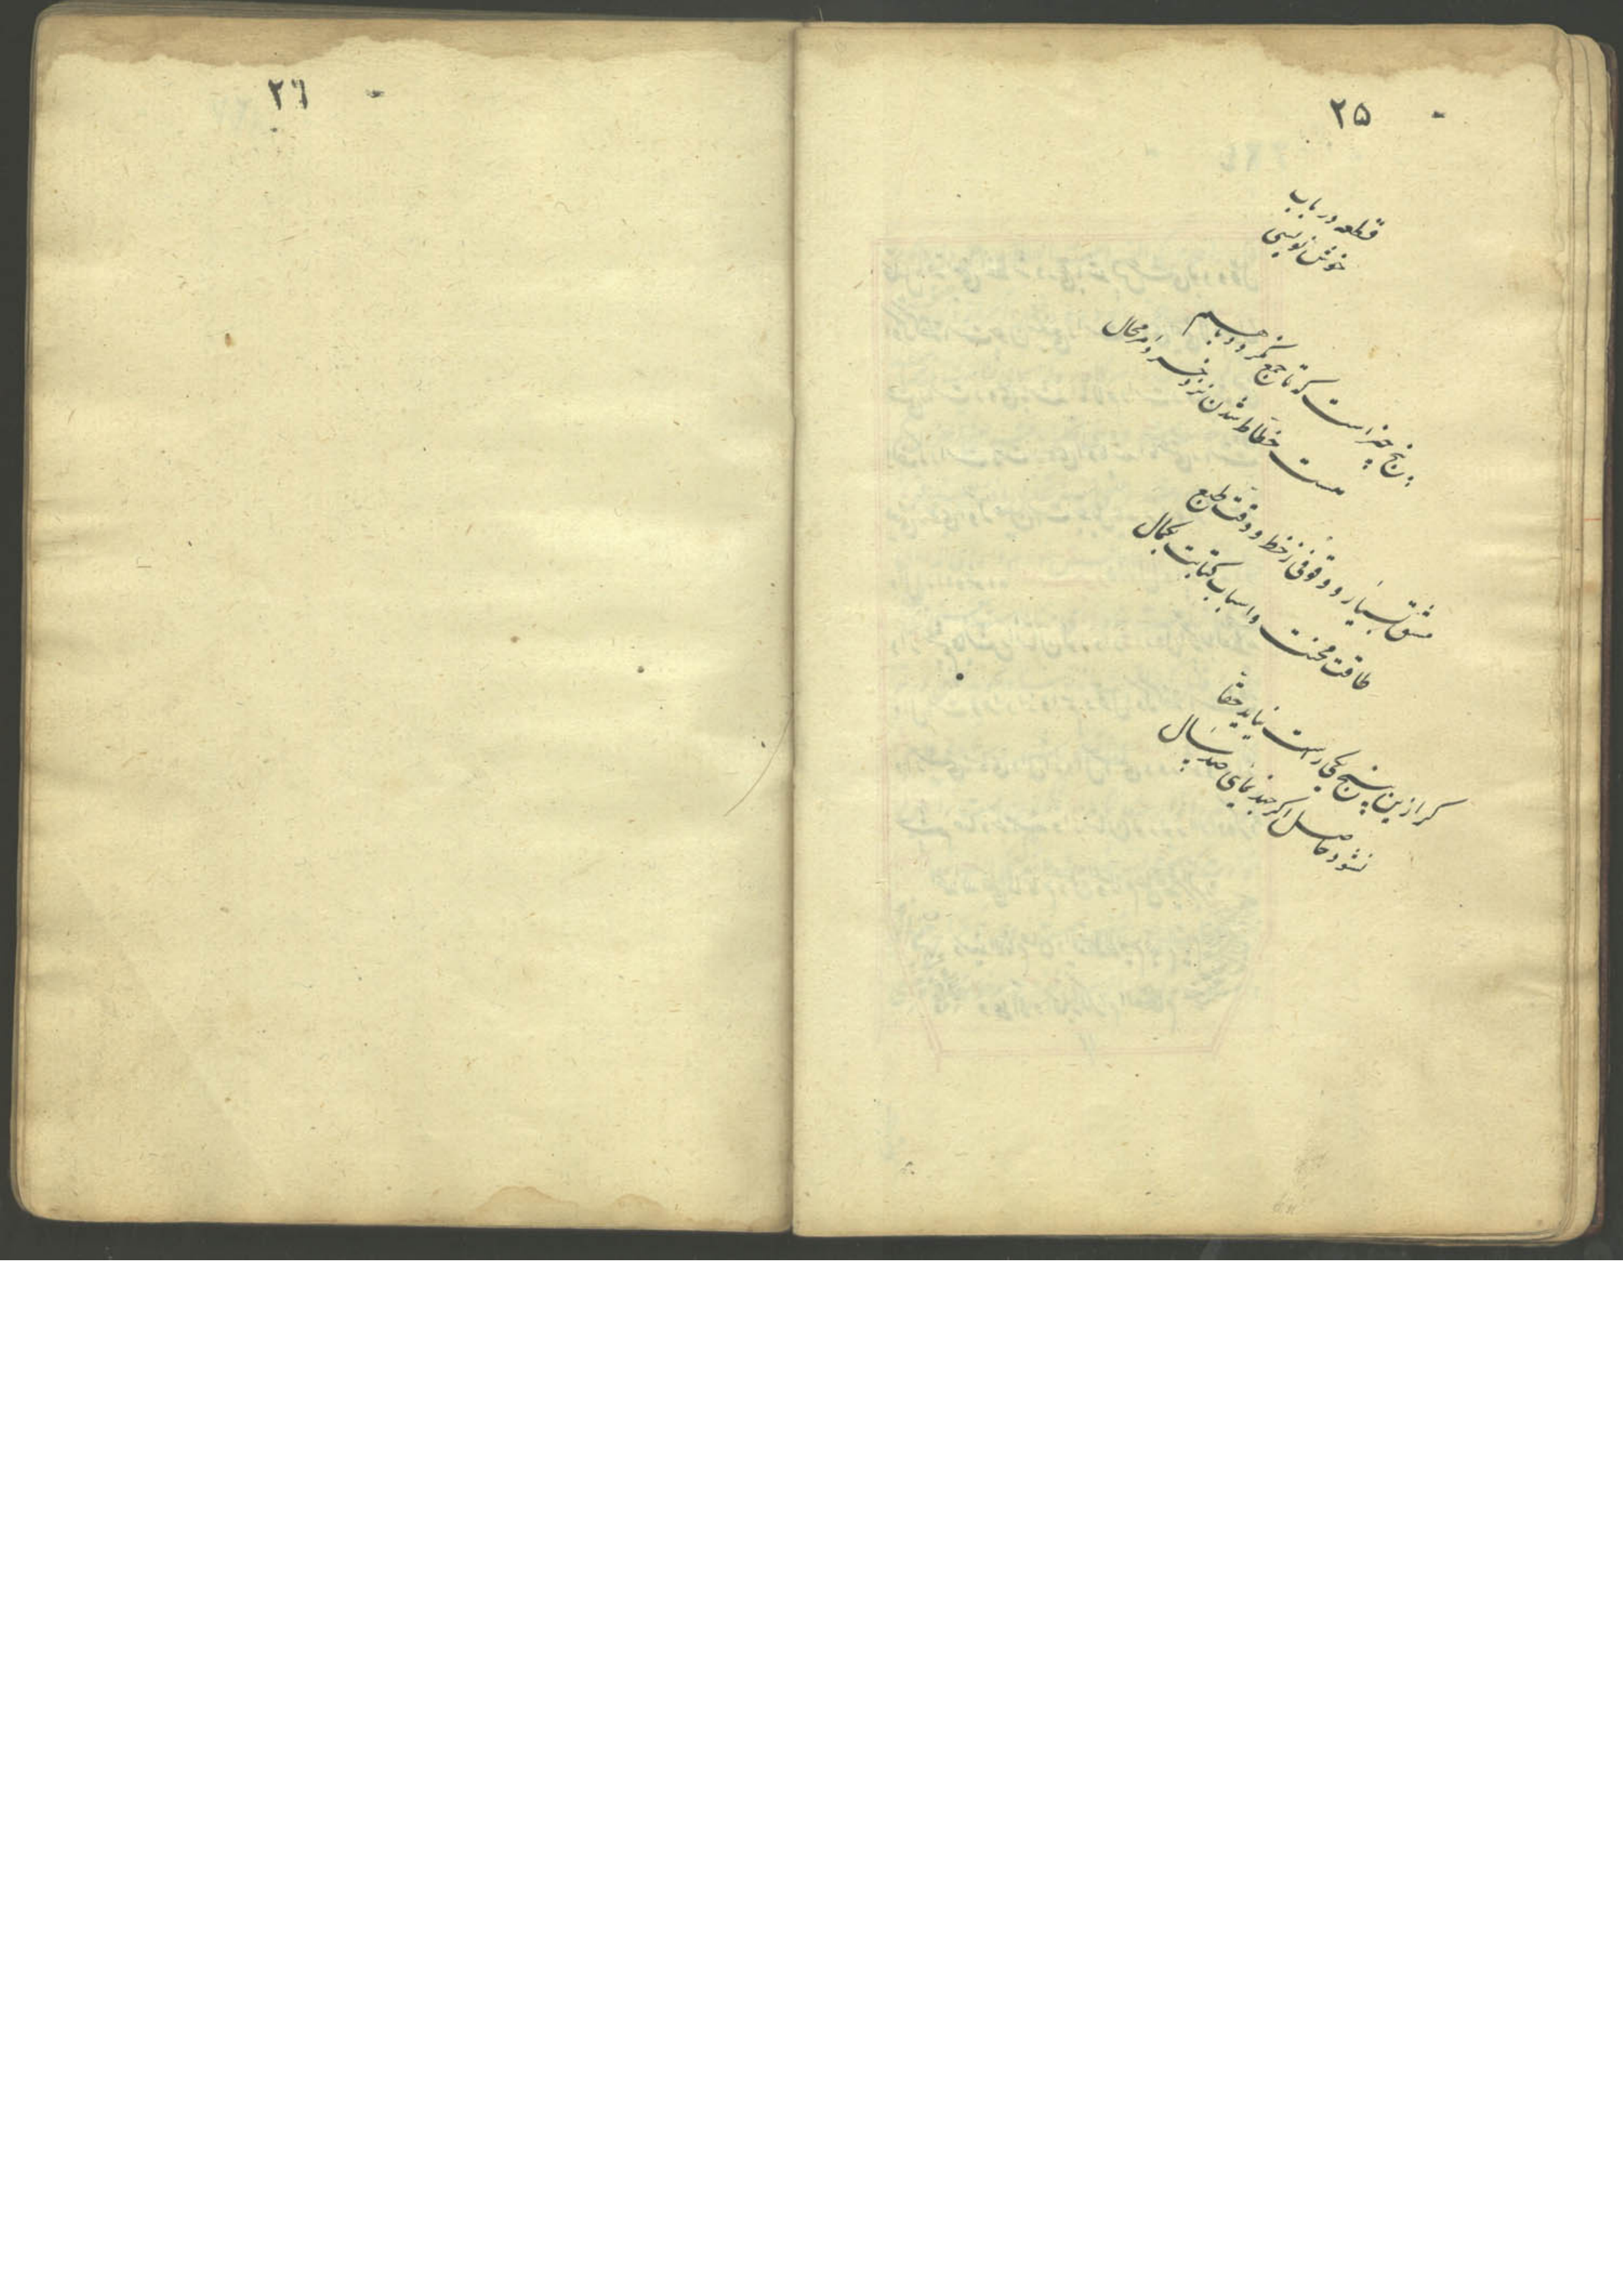 ۲۵
قطعه در باب
خوش نویسی
پنج چیز است که تا جمع نکردد باهم
هست خطّاط شدن نزد خرد امر محال
دقّت طبع و وقوفی ز خط و مشق بسیار
طاقت محنت و اسباب کتابت بکمال
کر ازین پنج یکی راست نیاید حقّا
نشود حاصل اکر چند نمایی صد سال
۲٦